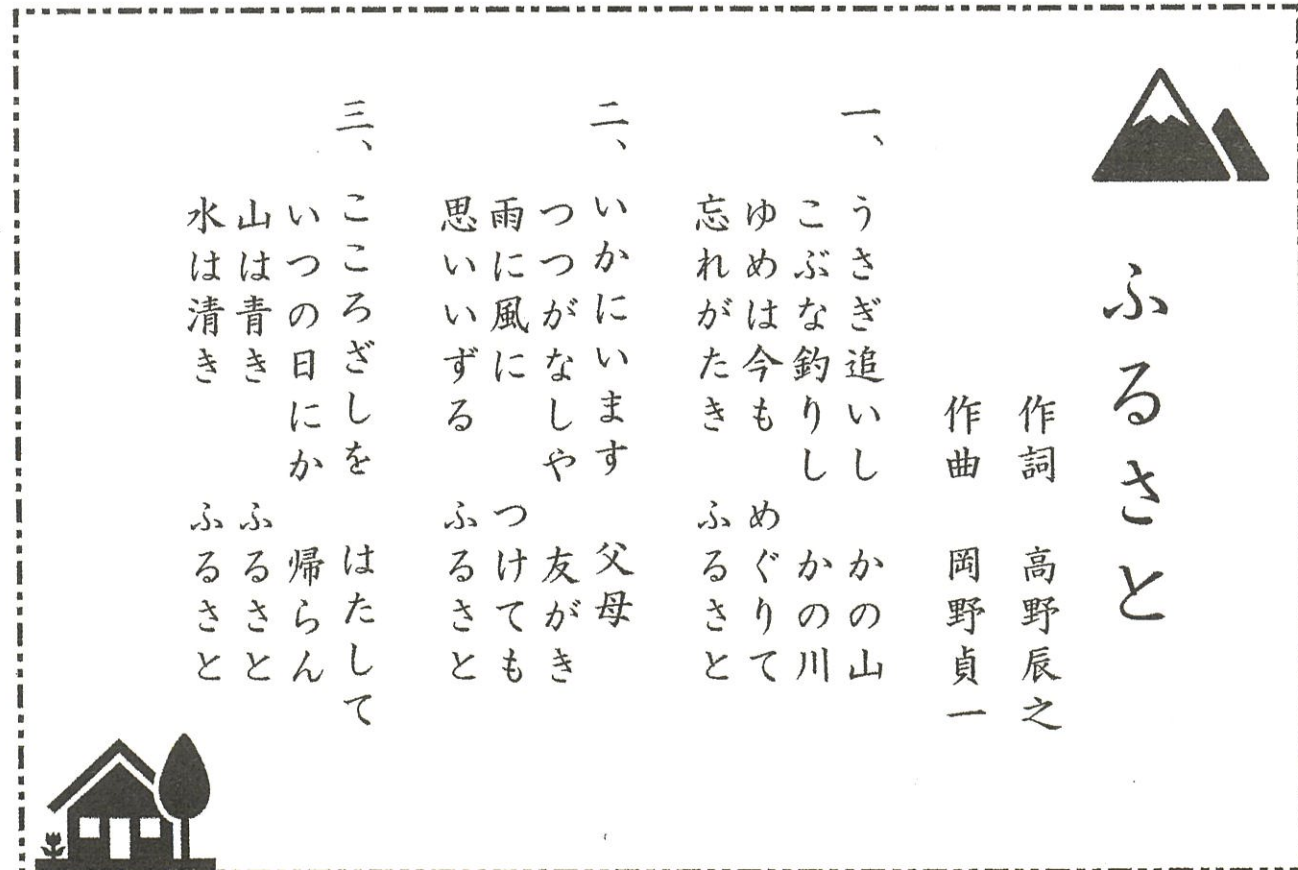 ふるさと
作詞　高野辰之
作曲　岡野貞一
一、うさぎ追いし　かの山
こぶな釣りし　かの川
ゆめは今も　めぐりて
忘れがたき　ふるさと
二、いかにいます　父母
つつがなしや　友がき
雨に風に　つけても
思いいずる　ふるさと
三、こころざしを　はたして
いつの日にか　帰らん
山は青き　ふるさと
水は清き　ふるさと